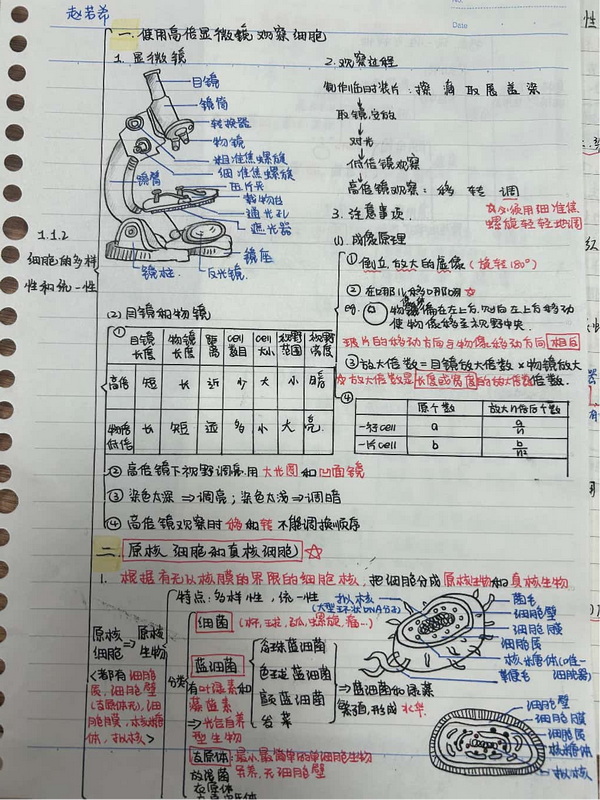 赵若希
No.
Date
一.使用高倍显微镜观察细胞
1. 显微镜
目镜
镜筒
转换器
物镜
粗准焦螺旋
细准焦螺旋
压片夹
镜臂
载物台
通光孔
遮光器
镜座
镜柱.
反光镜.
2.观察过程
制作临时装片: 擦 滴 取 展 盖 染
取镜安放
对光
低倍镜观察
高倍镜观察: 移 转 调
只能使用细准焦
螺旋轻轻地调
3. 注意事项.
(1). 成像原理
① 倒立.放大的虚像(旋转180°)
② 在哪儿移哪
eg. 物像偏在左上后,则向左上后移动
使物像移至视野中央.
玻片的移动方向与物像移动方向 相反
③ 放大倍数=目镜放大倍数×物镜放大倍数.
放大倍数是长度或宽度的放大倍数
④
原个数 放大n倍后个数
一行cell a a/n
一片cell b b/n²
1.1.2
细胞的多样
性和统一性
(2) 目镜和物镜
① 目镜长度 物镜长度 距离 cell数目 cell大小 视野范围 视野亮度
高倍 短 长 近 少 大 小 暗
低倍 长 短 远 多 小 大 亮
② 高倍镜下视野调亮.用 大光圈 和 凹面镜
③ 染色太深 ⇒调亮; 染色太浅⇒调暗
④ 高倍镜观察时 移 和 转 不能调换顺序
二. 原核细胞和真核细胞 ☆
1. 根据有无以核膜为界限的细胞核, 把细胞分成 原核生物和真核生物
原核细胞 ⇒ 原核生物
<都有细胞
质,细胞壁
(支原体无),细
胞膜,核糖体,拟核>
特点:多样性,统一性
分类
细菌 (杆,球,弧,螺旋,痢…)
蓝细菌
有叶绿素和
藻蓝素
⇒光合自养
型生物
色球蓝细菌
颤蓝细菌
发菜
⇒蓝细菌的爆发
繁殖,形成 水华
支原体:最小最简单的单细胞生物
无细胞壁
放线菌
衣原体
拟核
(大型环状DNA分子)
菌毛
细胞壁
细胞膜
细胞质
核糖体(唯一
细胞器)
鞭毛
细胞壁
细胞膜
细胞质
核糖体
拟核